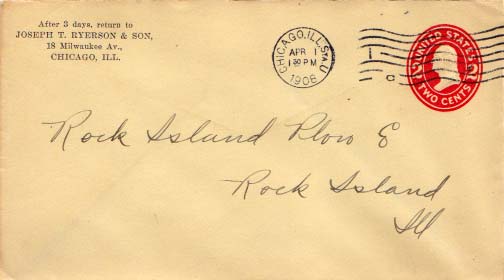 After 3 days, return to
JOSEPH T. RYERSON & SON,
18 Milwaukee Av.,
CHICAGO, ILL.
CHICAGO, ILL. STA. U
APR 1
1 30 PM
1908
UNITED STATES
2 2
TWO CENTS
Rock Island Plow &
Rock Island
Ill